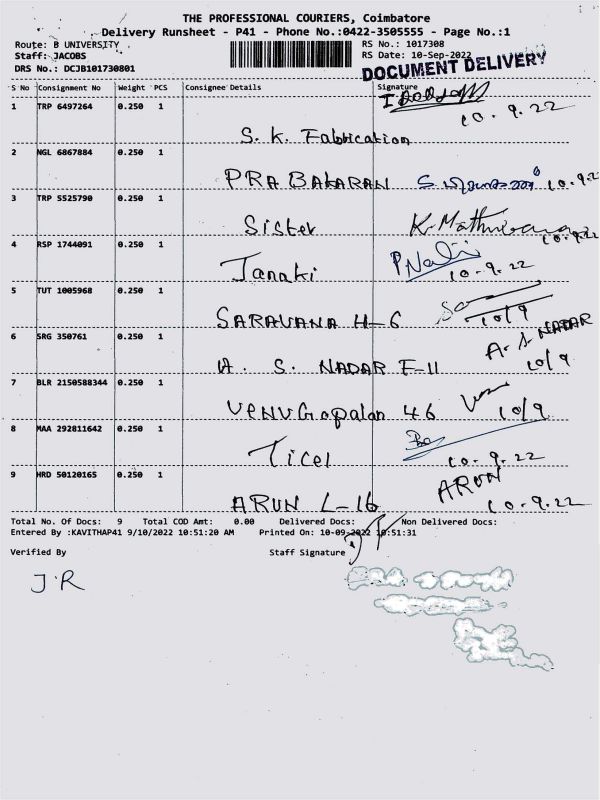 THE PROFESSIONAL COURIERS, Coimbatore
Delivery Runsheet - P41 - Phone No.:0422-3505555 - Page No.:1
Route: B UNIVERSITY
RS No.: 1017308
Staff: JACOBS
RS Date: 10-Sep-2022
DRS No.: DCJB101730801
DOCUMENT DELIVERY
S No Consignment No Weight PCS Consignee Details Signature
1 TRP 6497264 0.250 1
10.9.22
S.K. Fabrication
2 NGL 6867884 0.250 1
PRABAKARAN 10.9.22
3 TRP 5525790 0.250 1
Sister K. 10.9.22
4 RSP 1744091 0.250 1
Janaki 10.9.22
5 TUT 1005968 0.250 1
SARAVANA H-6 10/9
6 SRG 350761 0.250 1
A. S. NADAR E-11 A. S NADAR 10/9
7 BLR 2150588344 0.250 1
VENUGopalan 46 10/9
8 MAA 292811642 0.250 1
Ticel 10.9.22
9 HRD 50120165 0.250 1
ARUN L-16 ARUN 10.9.22
Total No. Of Docs: 9 Total COD Amt: 0.00 Delivered Docs: Non Delivered Docs:
Entered By :KAVITHAP41 9/10/2022 10:51:20 AM Printed On: 10-09-2022 10:51:31
Verified By Staff Signature
J.R